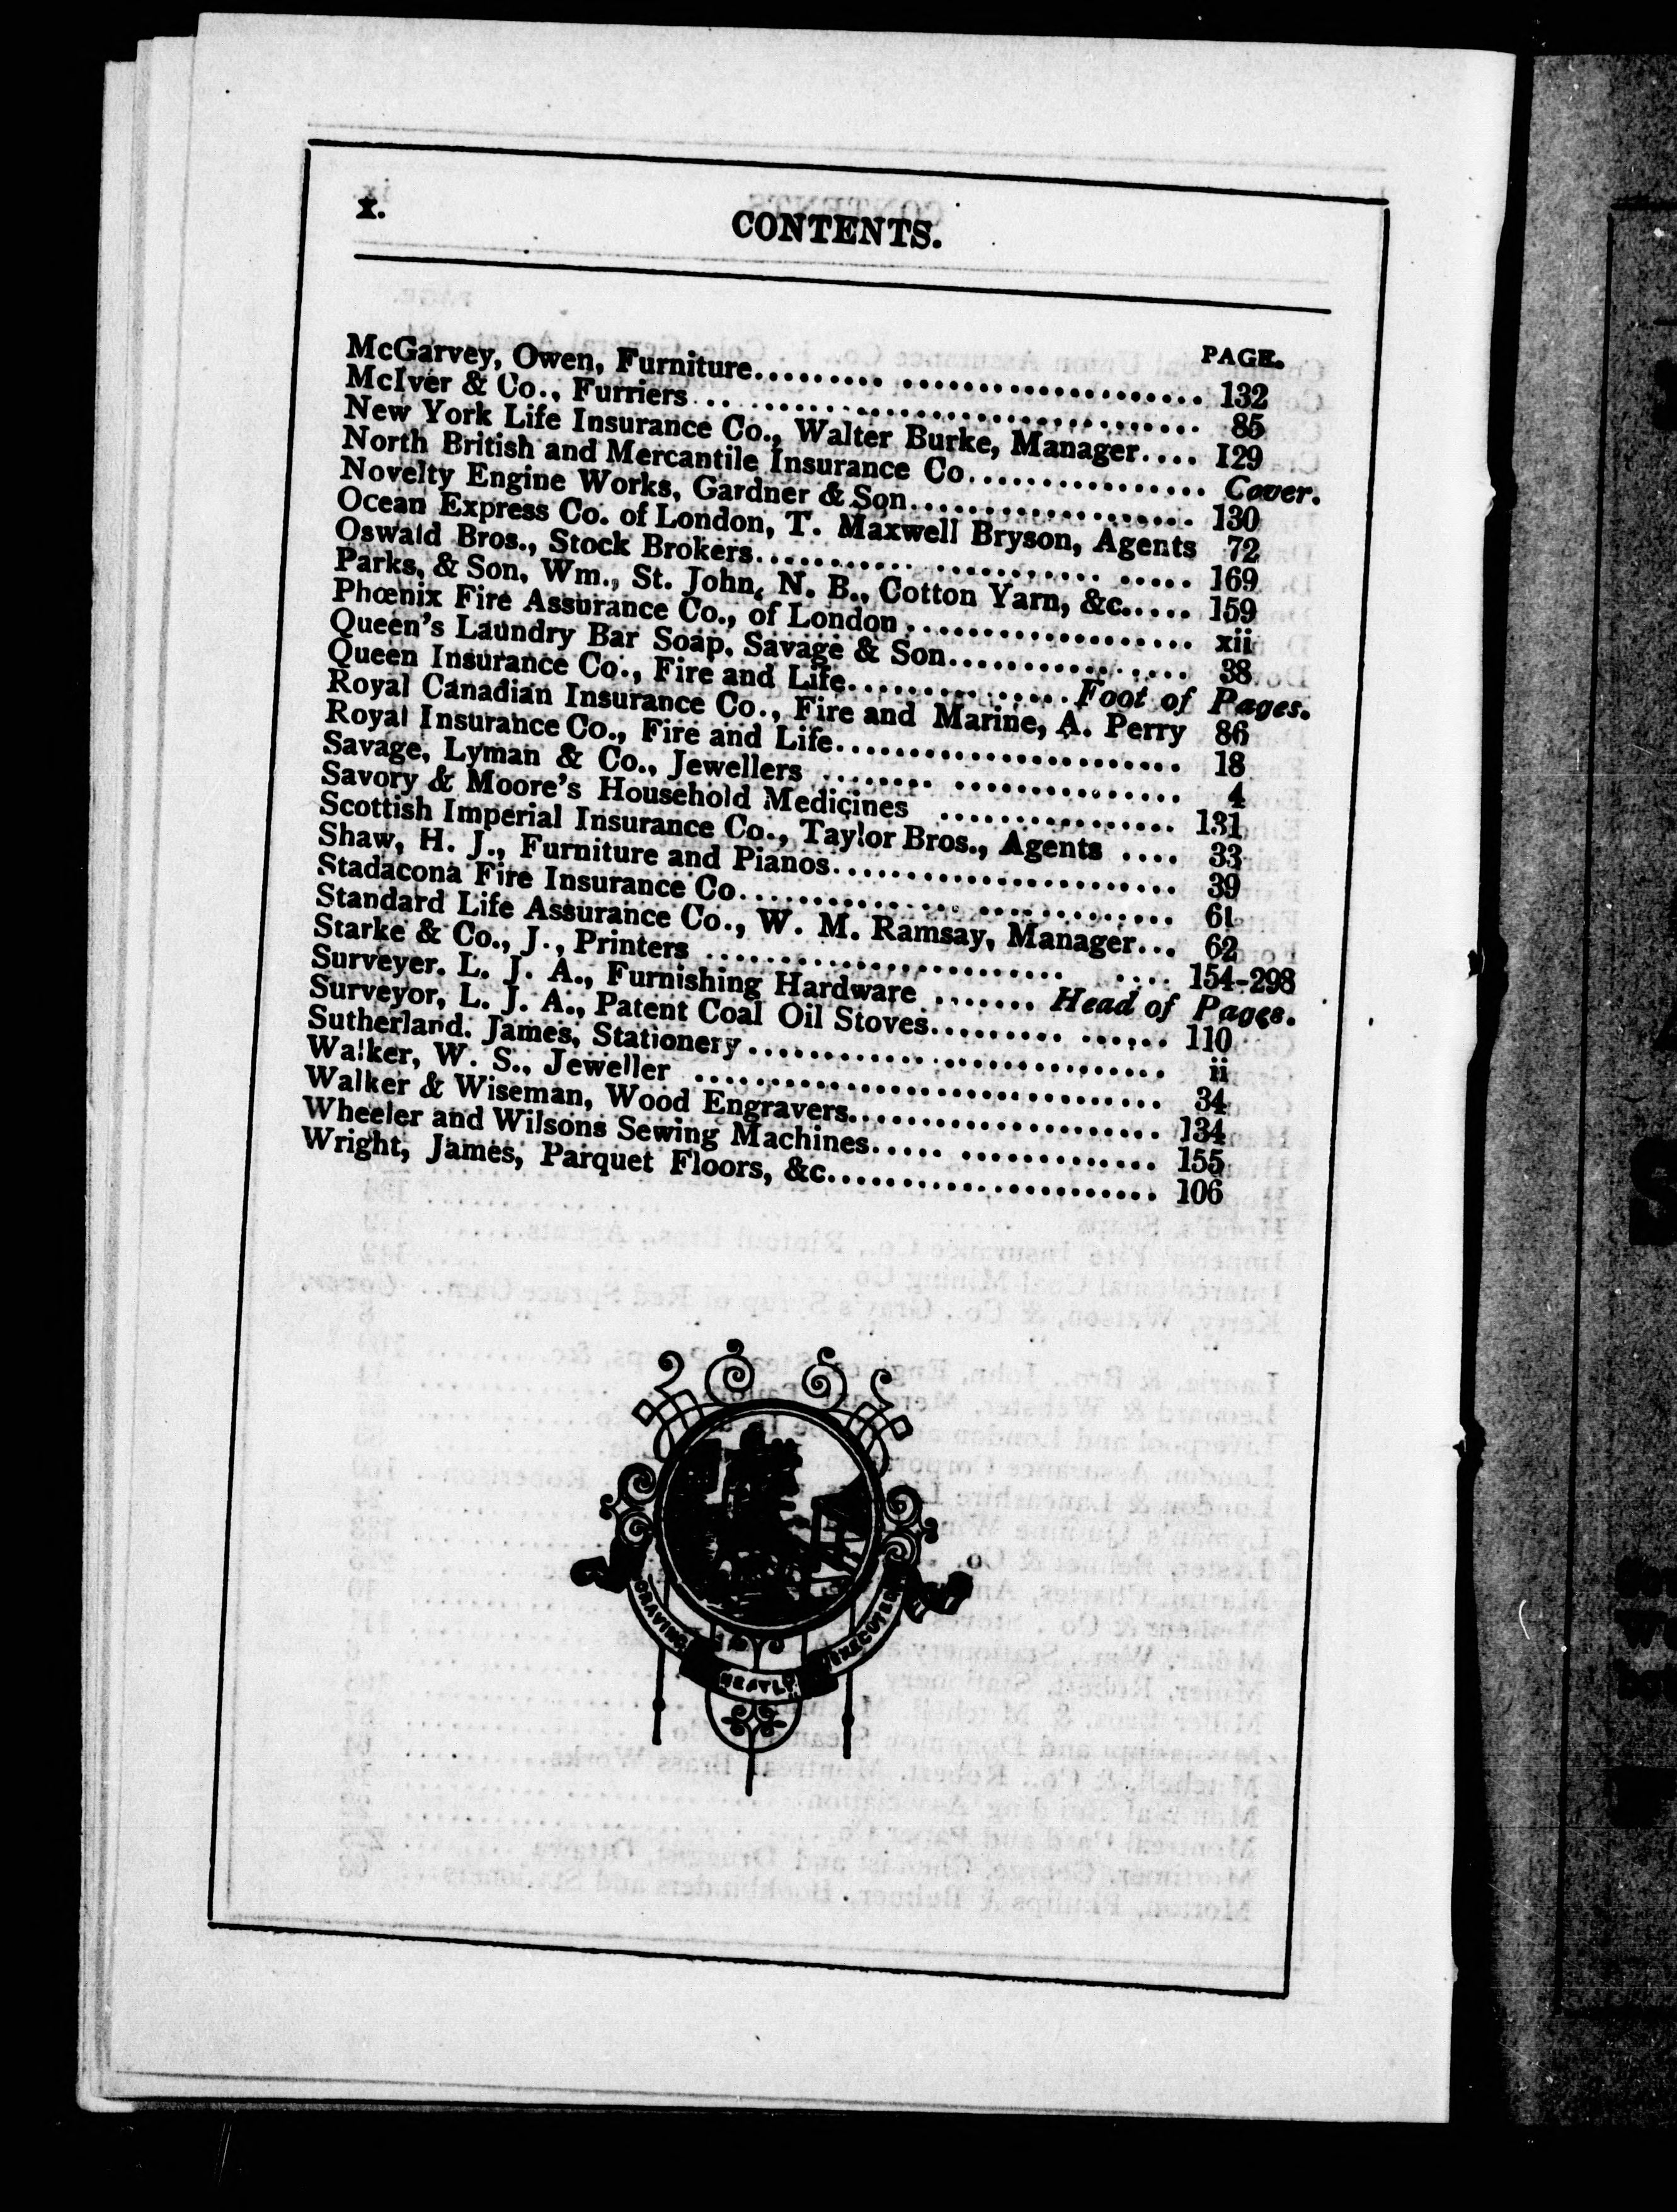 x.
CONTENTS.
PAGE.
McGarvey, Owen, Furniture.......... .................... 132
McIver & Co., Furriers... ................................ 85
New York Life Insurance Co., Walter Burke, Manager.... 129
North British and Mercantile Insurance Co................. Cover.
Novelty Engine Works, Gardner & Son.................... 130
Ocean Express Co. of London, T. Maxwell Bryson, Agents 72
Oswald Bros., Stock Brokers........... ............ ..... 169
Parks, & Son, Wm., St. John, N. B., Cotton Yarn, &c..... 159
Phœnix Fire Assurance Co., of London .................... xii
Queen's Laundry Bar Soap, Savage & Son................. 38
Queen Insurance Co., Fire and Life................Foot of Pages.
Royal Canadian Insurance Co., Fire and Marine, A. Perry 86
Royal Insurance Co., Fire and Life........................ 18
Savage, Lyman & Co., Jewellers ........ ................ 4
Savory & Moore's Household Medicines ................. 131
Scottish Imperial Insurance Co., Taylor Bros., Agents .... 33
Shaw, H. J., Furniture and Pianos........................ 39
Stadacona Fire Insurance Co............... .............. 61
Standard Life Assurance Co., W. M. Ramsay, Manager... 62
Starke & Co., J., Printers ......................... .... 154-298
Surveyer. L. J. A., Furnishing Hardware ....... Head of Pages.
Surveyor, L. J. A., Patent Coal Oil Stoves......... ...... 110
Sutherland. James, Stationery ............................. ii
Walker, W. S., Jeweller ................................. 34
Walker & Wiseman, Wood Engravers...................... 134
Wheeler and Wilsons Sewing Machines..... .............. 155
Wright, James, Parquet Floors, &c........................ 106
NEATLY
EXECUTED